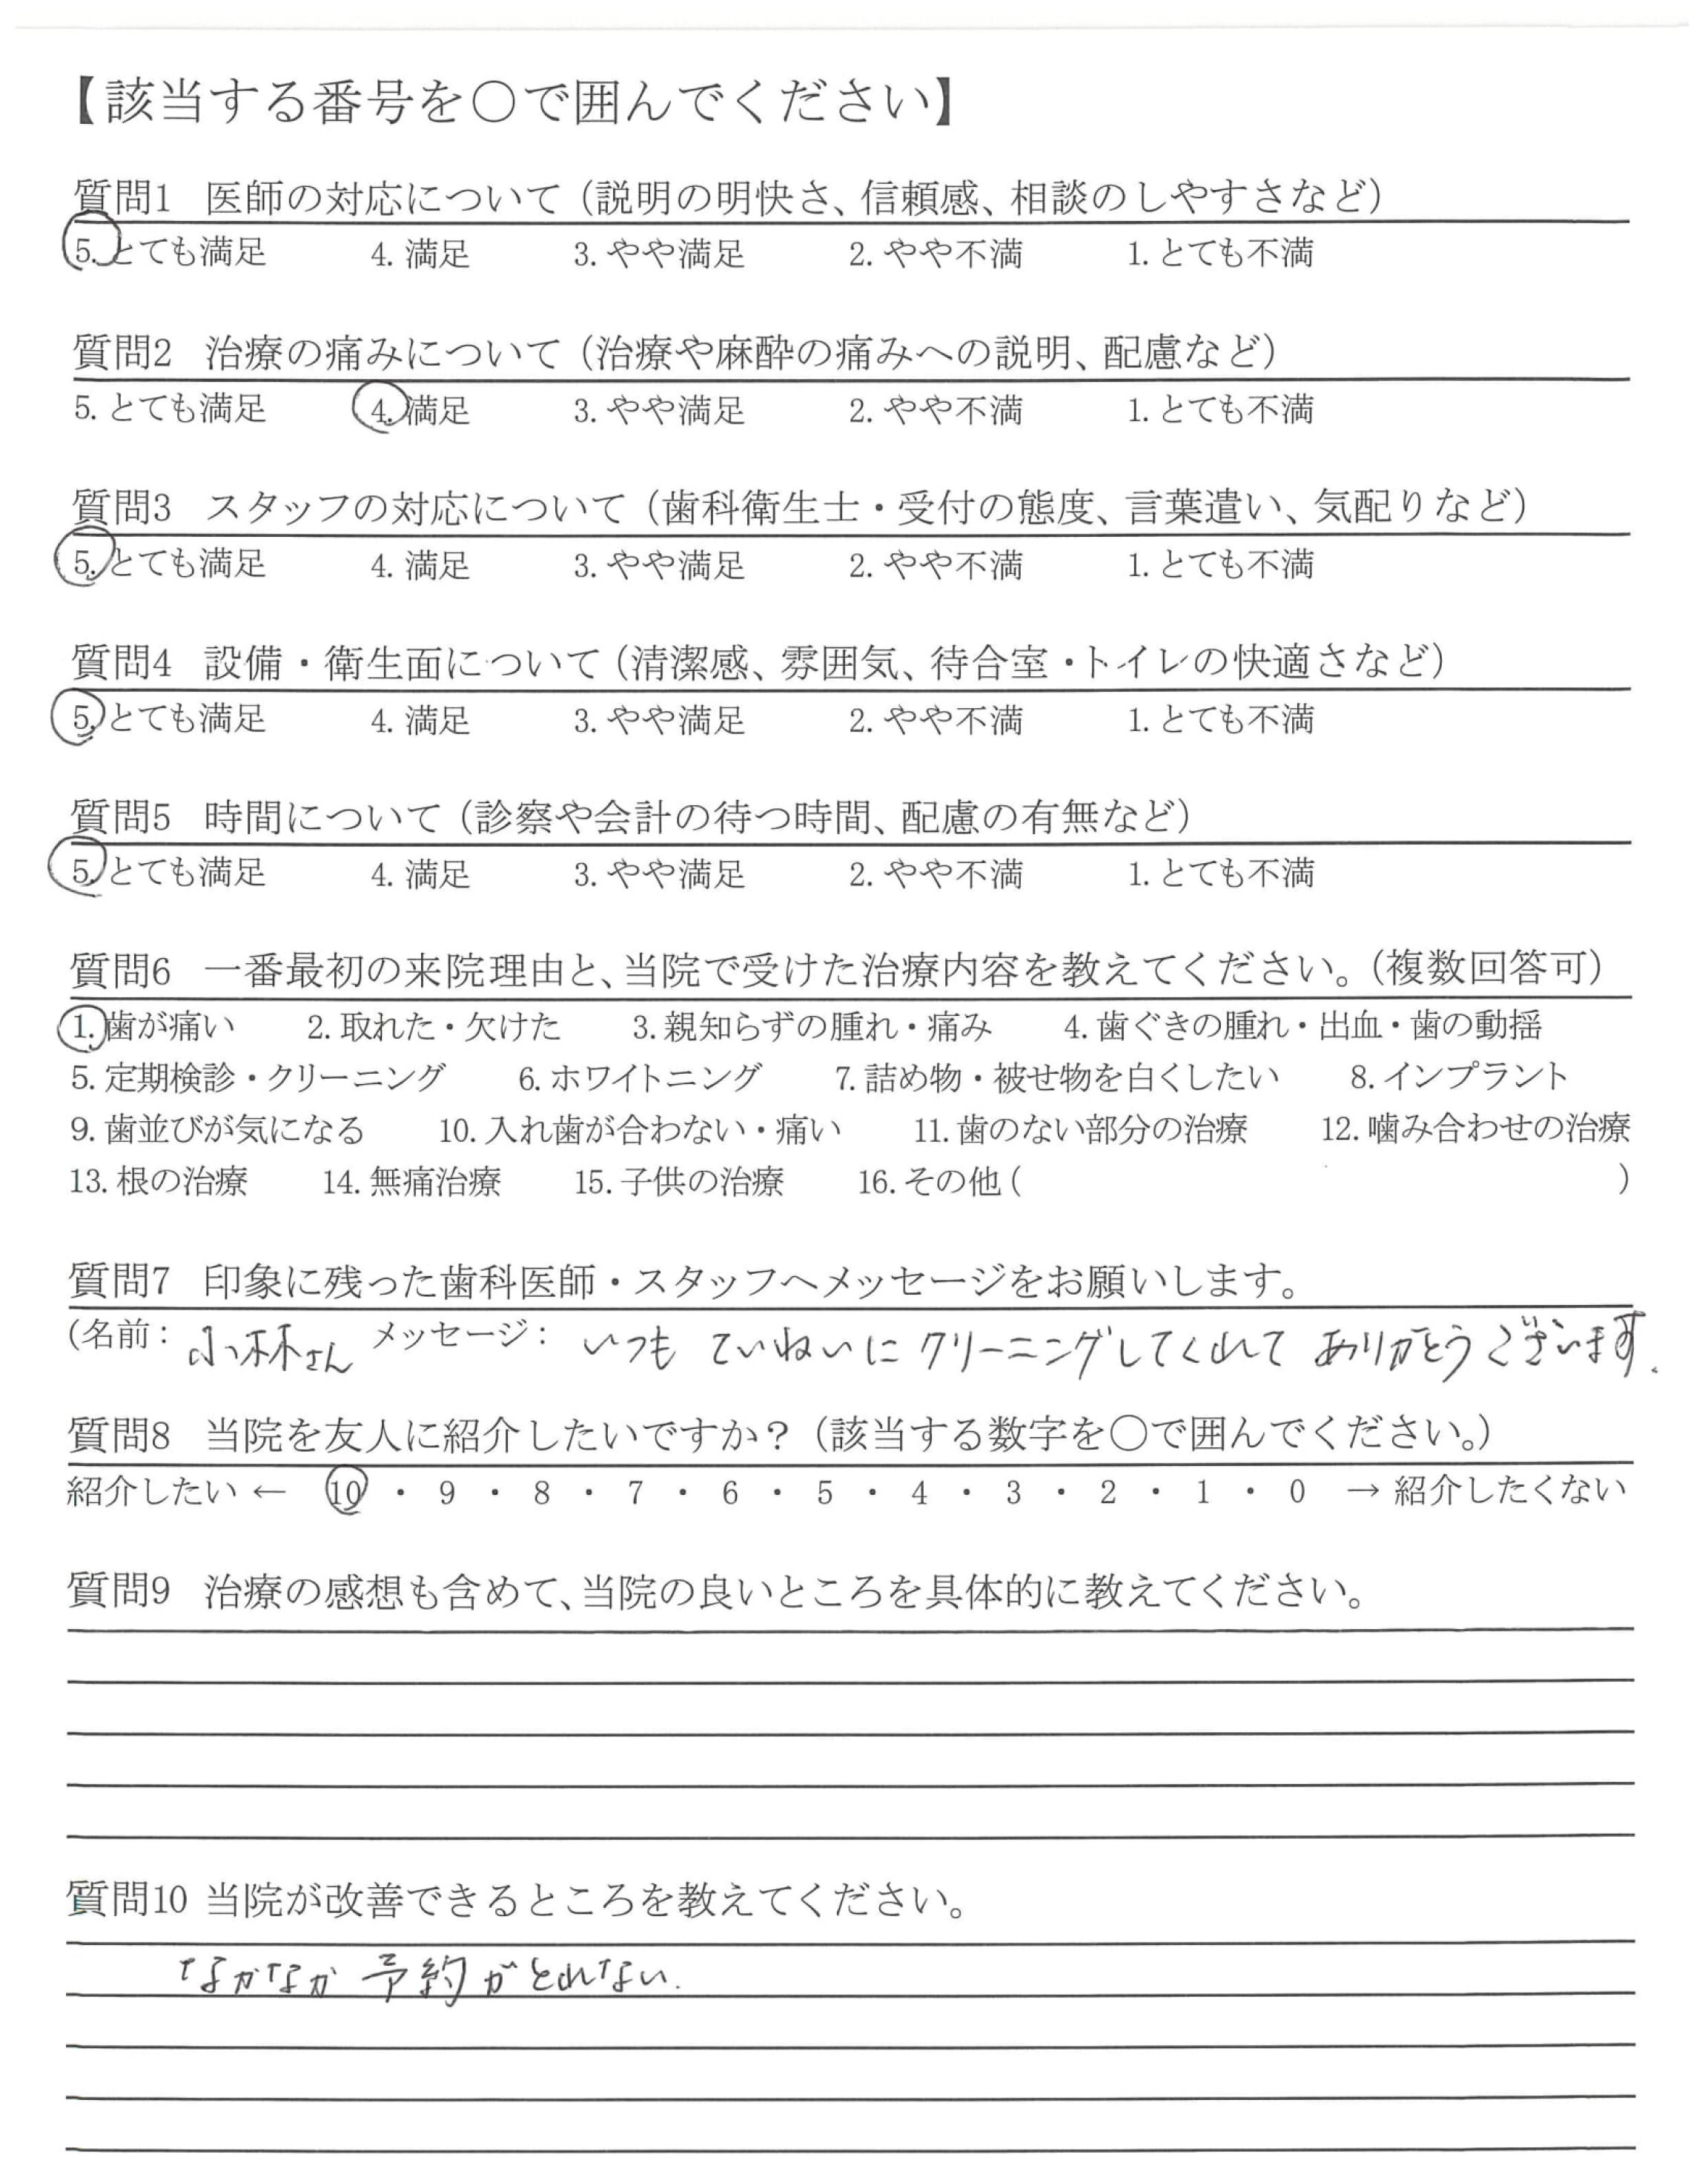 【該当する番号を〇で囲んでください】
質問1 医師の対応について（説明の明快さ、信頼感、相談のしやすさなど）
5. とても満足 4. 満足 3. やや満足 2. やや不満 1. とても不満
質問2 治療の痛みについて（治療や麻酔の痛みへの説明、配慮など）
5. とても満足 4. 満足 3. やや満足 2. やや不満 1. とても不満
質問3 スタッフの対応について（歯科衛生士・受付の態度、言葉遣い、気配りなど）
5. とても満足 4. 満足 3. やや満足 2. やや不満 1. とても不満
質問4 設備・衛生面について（清潔感、雰囲気、待合室・トイレの快適さなど）
5. とても満足 4. 満足 3. やや満足 2. やや不満 1. とても不満
質問5 時間について（診察や会計の待つ時間、配慮の有無など）
5. とても満足 4. 満足 3. やや満足 2. やや不満 1. とても不満
質問6 一番最初の来院理由と、当院で受けた治療内容を教えてください。（複数回答可）
1. 歯が痛い 2. 取れた・欠けた 3. 親知らずの腫れ・痛み 4. 歯ぐきの腫れ・出血・歯の動揺
5. 定期検診・クリーニング 6. ホワイトニング 7. 詰め物・被せ物を白くしたい 8. インプラント
9. 歯並びが気になる 10. 入れ歯が合わない・痛い 11. 歯のない部分の治療 12. 噛み合わせの治療
13. 根の治療 14. 無痛治療 15. 子供の治療 16. その他 ( )
質問7 印象に残った歯科医師・スタッフへメッセージをお願いします。
(名前： 小林さん メッセージ： いつも ていねいに クリーニングしてくれて ありがとうございます.
質問8 当院を友人に紹介したいですか？（該当する数字を〇で囲んでください。）
紹介したい ← 10 ・ 9 ・ 8 ・ 7 ・ 6 ・ 5 ・ 4 ・ 3 ・ 2 ・ 1 ・ 0 → 紹介したくない
質問9 治療の感想も含めて、当院の良いところを具体的に教えてください。
質問10 当院が改善できるところを教えてください。
なかなか 予約がとれない.